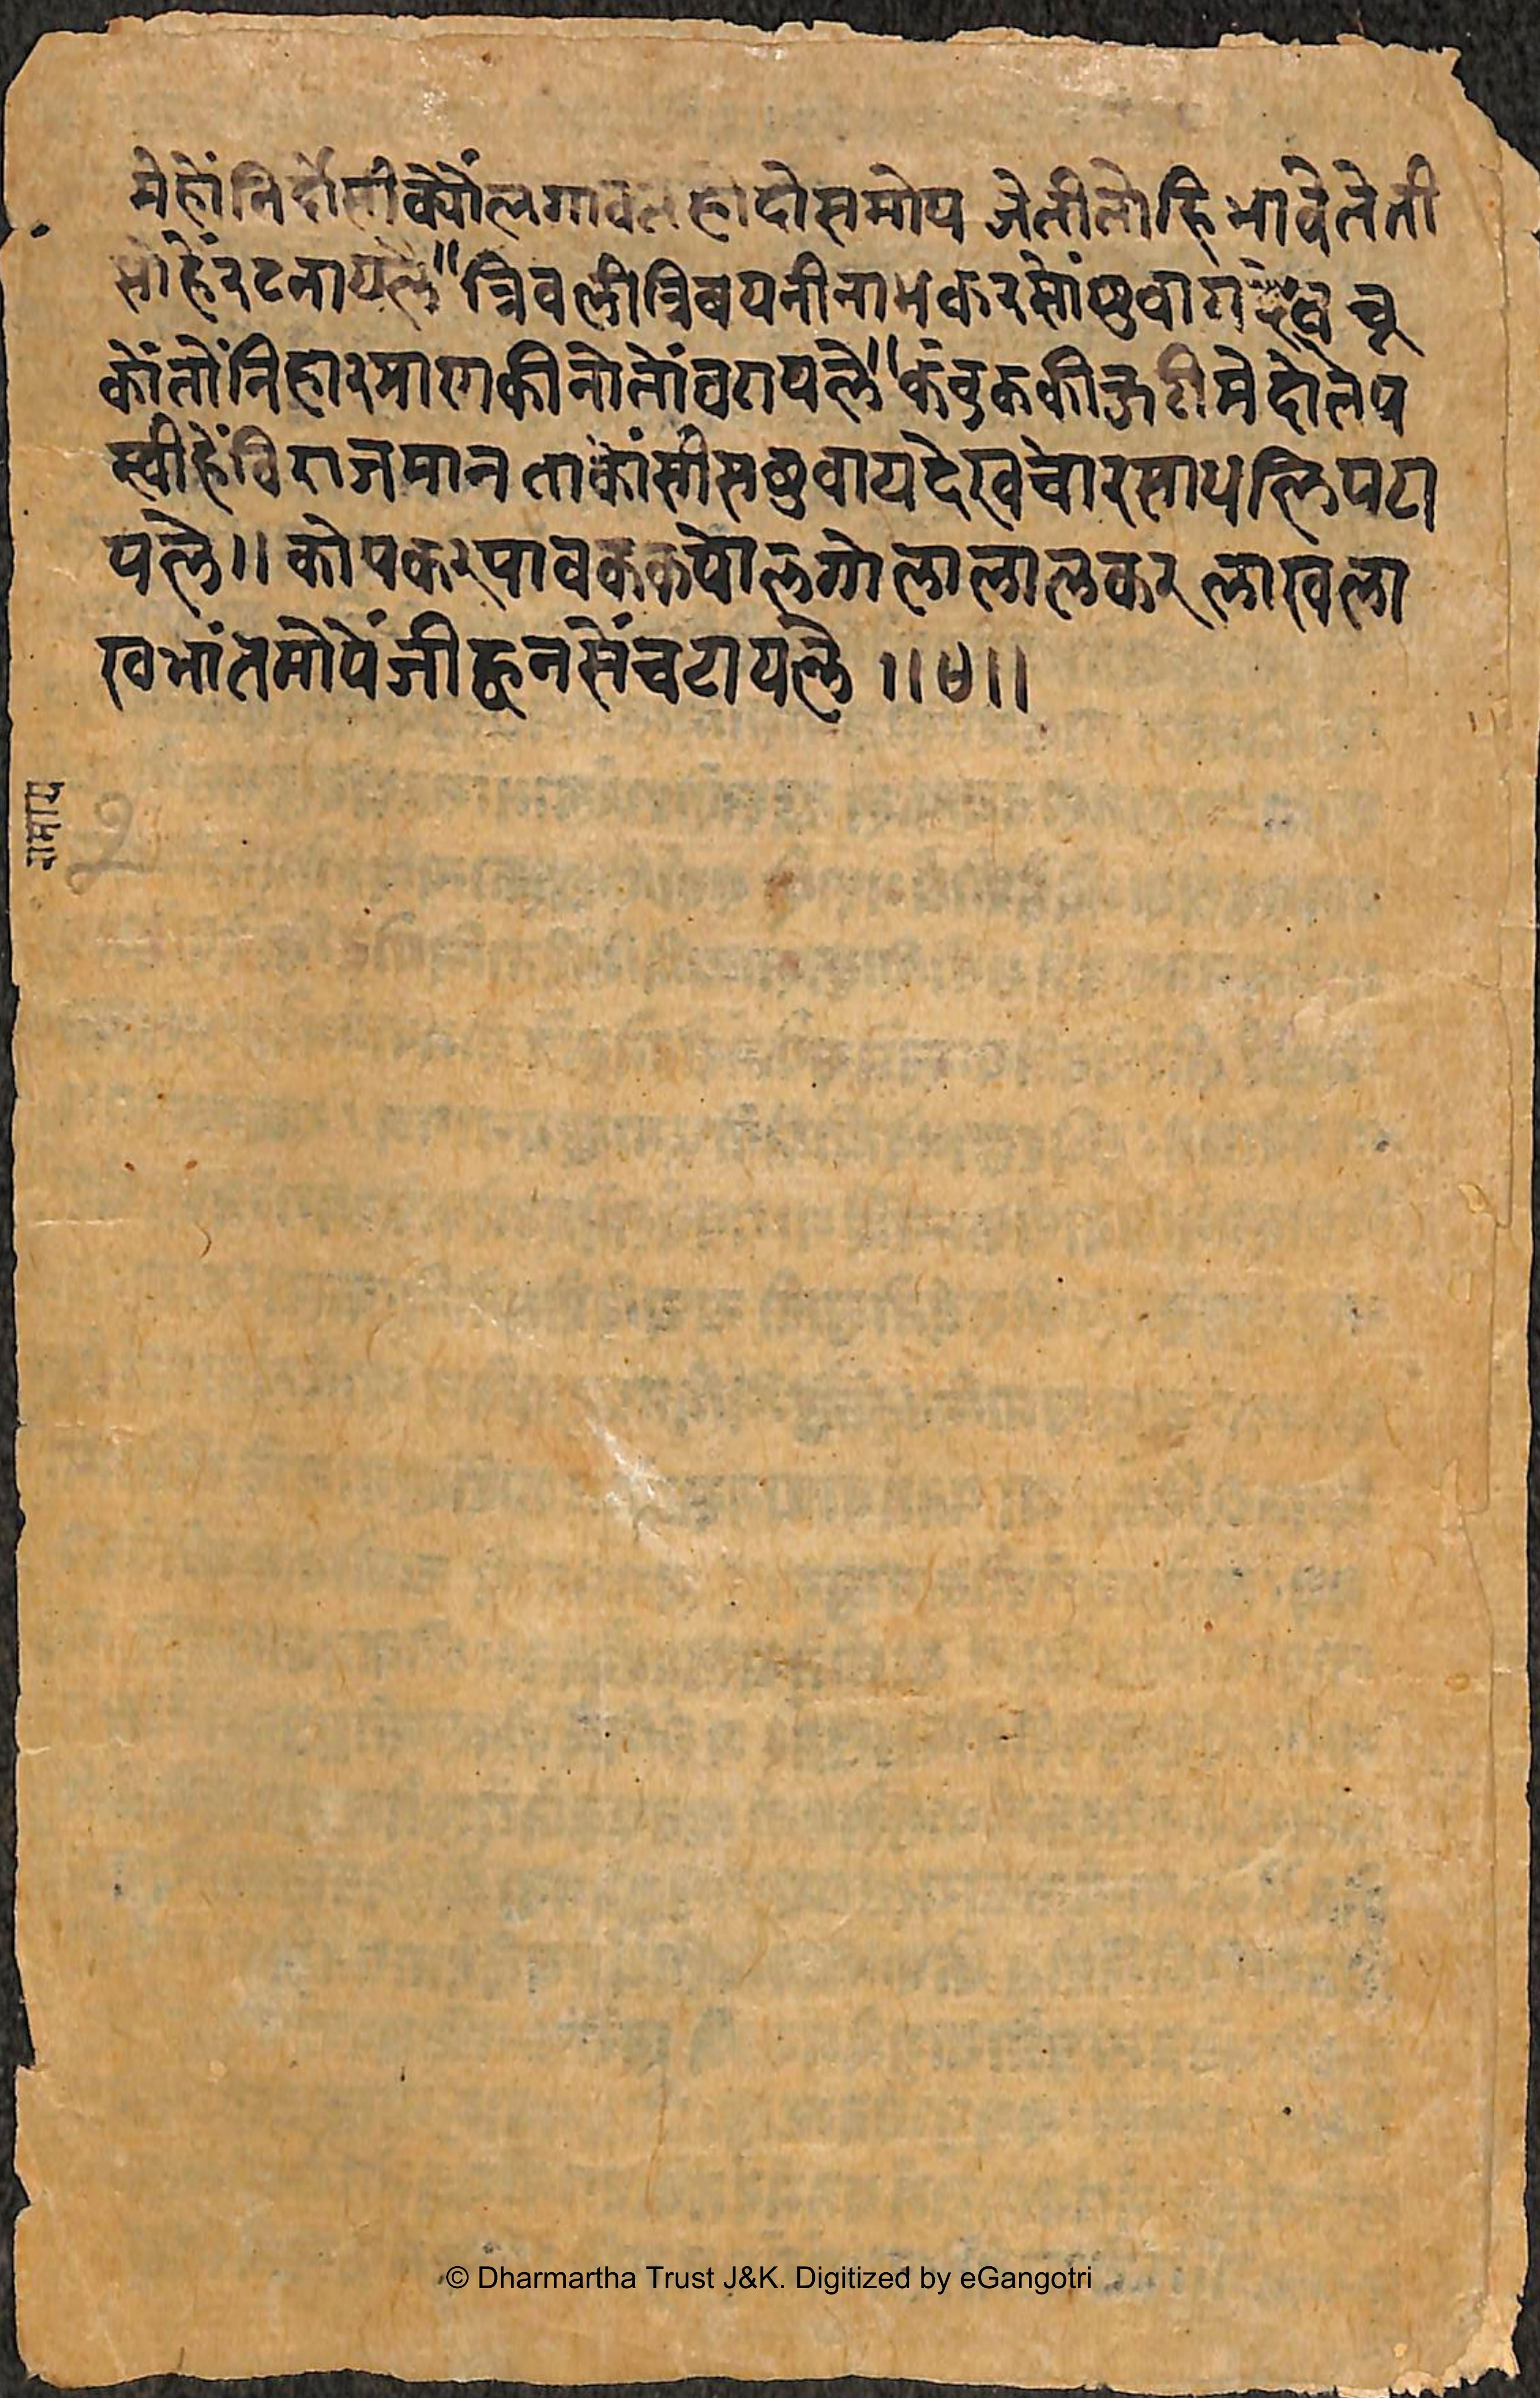 मेहोंनिर्दोसीक्योंलगावतहोदोसमोय जेतीतोहिभावेतेती
सोहेंरटनायलै॥त्रिवलीत्रिबयनीनाभकरसोंछुवाय चू
कोंतोंनिहारमारगकीनोतोंवटायलै॥कंवुककी मेदोलेप
स्वीहेंविराजमान ताकोंसीसछुवायदेखचोरसायलिपटा
यलै॥ कोपकरपावककपोलगोलालालकर लाखला
खभांतमोपेंजीह्वनसेंचटायलै ॥४॥
रामाय
२
© Dharmartha Trust J&K. Digitized by eGangotri